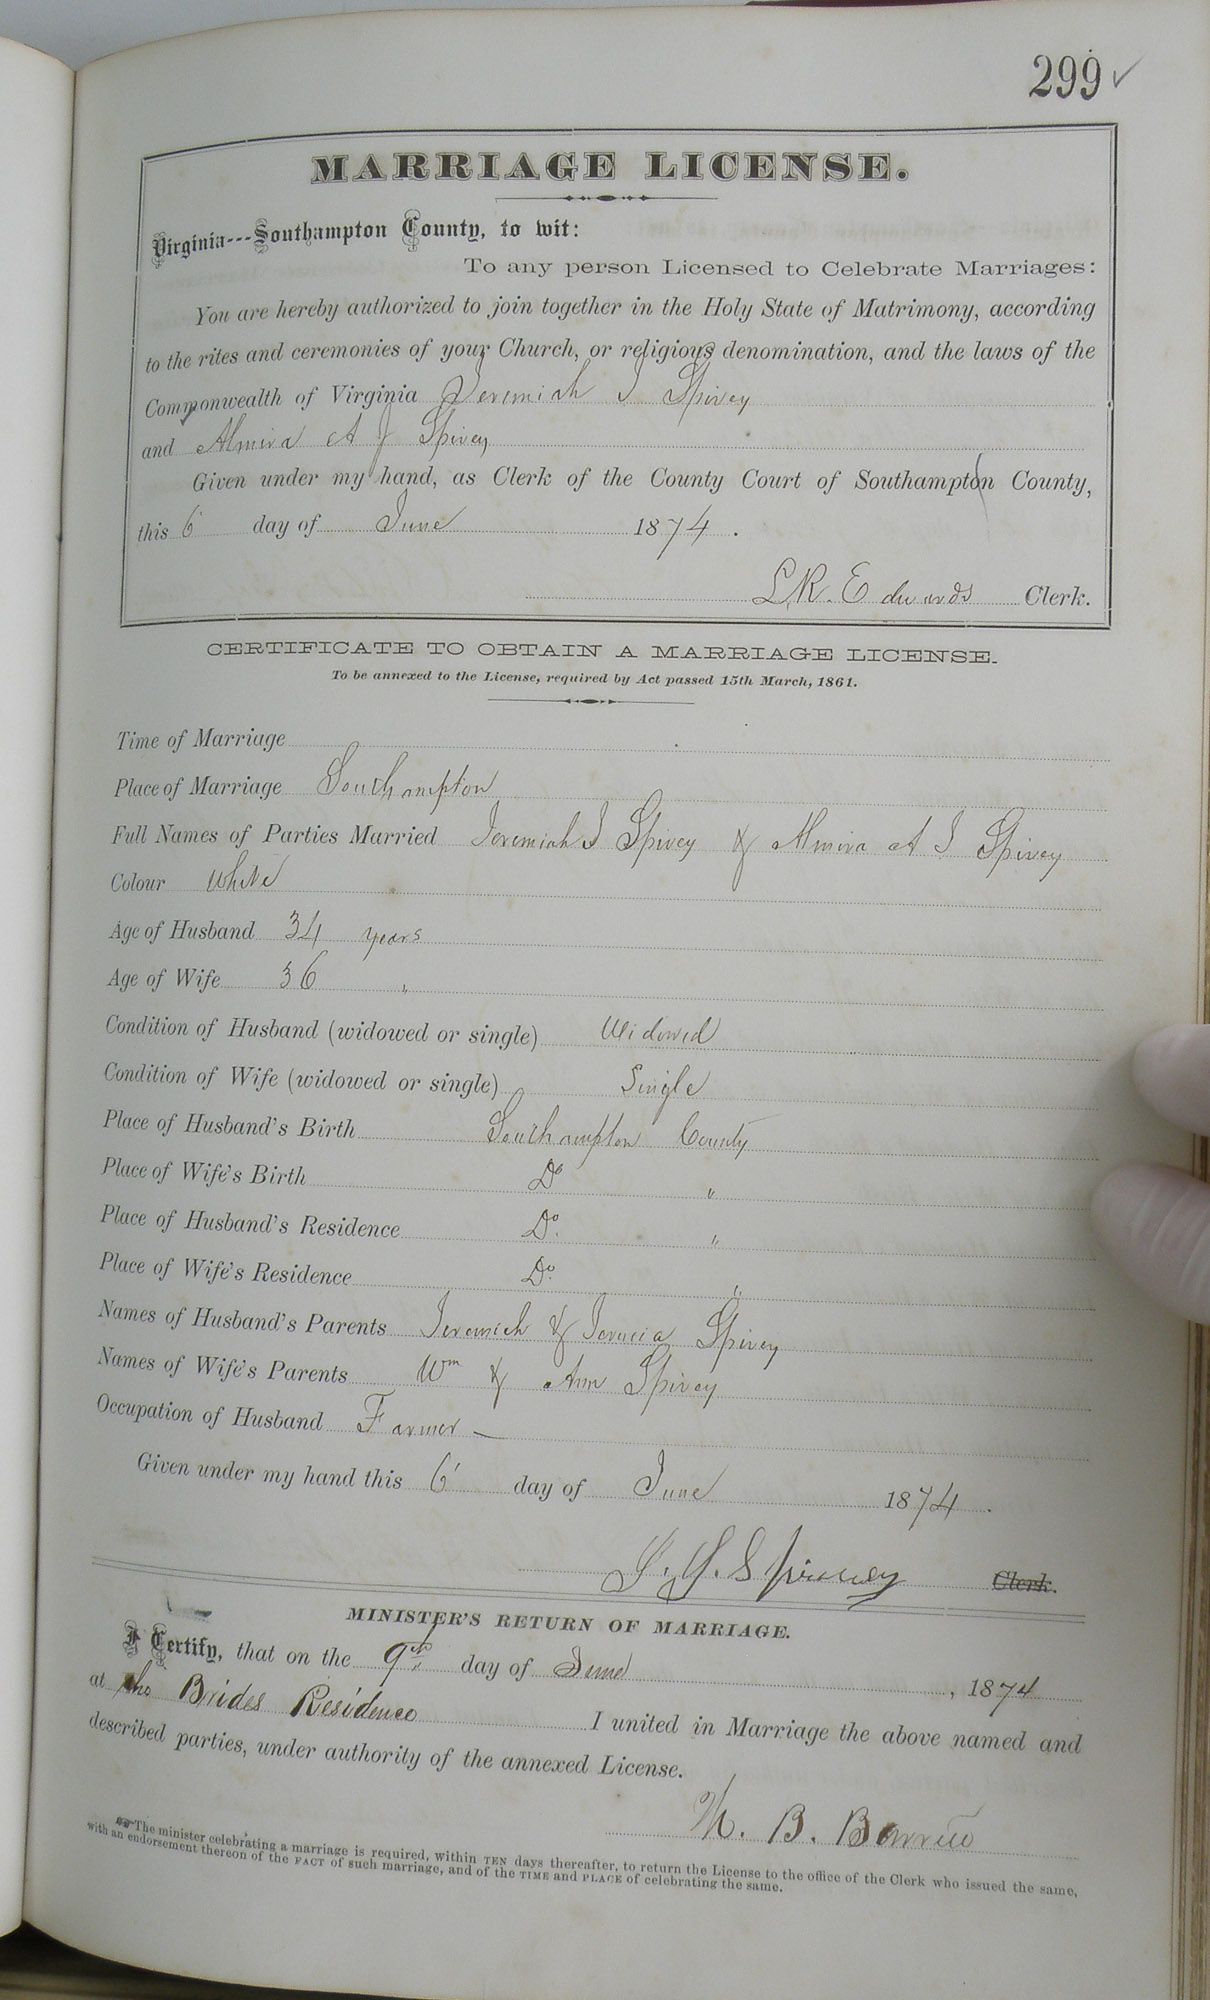 299 ✓
MARRIAGE LICENSE.
Virginia---Southampton County, to wit:
To any person Licensed to Celebrate Marriages:
You are hereby authorized to join together in the Holy State of Matrimony, according
to the rites and ceremonies of your Church, or religious denomination, and the laws of the
Commonwealth of Virginia Jeremiah J Spivey
and Almira A J Spivey
Given under my hand, as Clerk of the County Court of Southampton County,
this 6 day of June 1874.
L.R. Edwards Clerk.
CERTIFICATE TO OBTAIN A MARRIAGE LICENSE.
To be annexed to the License, required by Act passed 15th March, 1861.
Time of Marriage
Place of Marriage Southampton
Full Names of Parties Married Jeremiah J Spivey & Almira A J Spivey
Colour White
Age of Husband 34 years
Age of Wife 36 "
Condition of Husband (widowed or single) Widowed
Condition of Wife (widowed or single) Single
Place of Husband's Birth Southampton County
Place of Wife's Birth Do "
Place of Husband's Residence Do. "
Place of Wife's Residence Do. "
Names of Husband's Parents Jeremiah & Spivey
Names of Wife's Parents Wm & Ann Spivey
Occupation of Husband Farmer —
Given under my hand this 6 day of June 1874.
J. J. Spivey Clerk.
MINISTER'S RETURN OF MARRIAGE.
I Certify, that on the 9th day of June, 1874
at the Brides Residence I united in Marriage the above named and
described parties, under authority of the annexed License.
W. B. Barrett
The minister celebrating a marriage is required, within TEN days thereafter, to return the License to the office of the Clerk who issued the same,
with an endorsement thereon of the FACT of such marriage, and of the TIME and PLACE of celebrating the same.